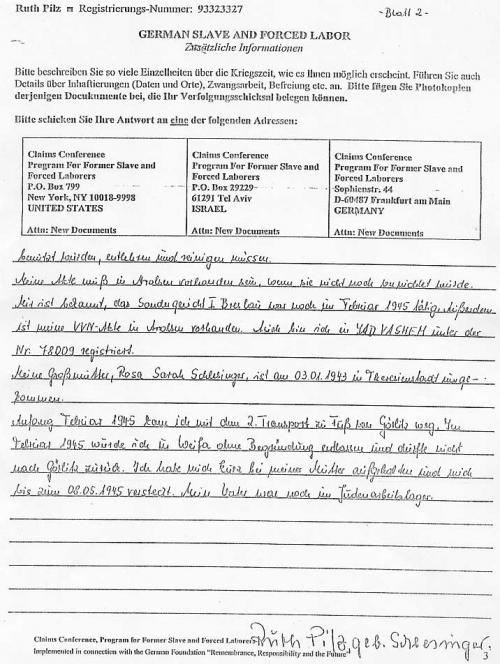 Ruth Pilz ▫ Registrierungs-Nummer: 93323327
- Blatt 2 -
GERMAN SLAVE AND FORCED LABOR
Zusätzliche Informationen
Bitte beschreiben Sie so viele Einzelheiten über die Kriegszeit, wie es Ihnen möglich erscheint. Führen Sie auch
Details über Inhaftierungen (Daten und Orte), Zwangsarbeit, Befreiung etc. an. Bitte fügen Sie Photokopien
derjenigen Docukumente bei, die Ihr Verfolgungsschicksal belegen können.
Bitte schicken Sie Ihre Antwort an eine der folgenden Adressen:
Claims Conference
Program For Former Slave and
Forced Laborers
P.O. Box 799
New York, NY 10018-9998
UNITED STATES
Attn: New Documents
Claims Conference
Program For Former Slave and
Forced Laborers
P.O. Box 29229
61291 Tel Aviv
ISRAEL
Attn: New Documents
Claims Conference
Program For Former Slave and
Forced Laborers
Sophienstr. 44
D-60487 Frankfurt am Main
GERMANY
Attn: New Documents
benützt wurden, entleeren und reinigen müssen.
Meine Akte muß in Arolsen vorhanden sein, wenn sie nicht noch vernichtet wurde.
Mir ist bekannt, das Sondergericht I Breslau war noch im Februar 1945 tätig. Außerdem
ist meine VVN-Akte in Arolsen vorhanden. Auch bin ich in YAD VASHEM unter der
Nr. 78009 registriert.
Meine Großmutter, Rosa Sarah Schlesinger, ist am 03.01.1943 in Theresienstadt umge-
kommen.
Anfang Februar 1945 kam ich mit dem 2. Transport zu Fuß von Görlitz weg. Im
Februar 1945 wurde ich in Weifa ohne Begründung entlassen und durfte nicht
nach Görlitz zurück. Ich habe mich kurz bei meiner Mutter aufgehalten und mich
bis zum 08.05.1945 versteckt. Mein Vater war noch im Judenarbeitslager.
Claims Conference, Program for Former Slave and Forced Laborers
Ruth Pilz, geb. Schlesinger.
Implemented in connection with the German Foundation "Remembrance, Responsibility and the Future"
3